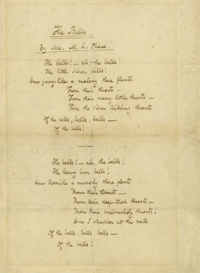 The Bells.
By Mrs. M. L. Shew.
The bells! — ah, the bells!
The little silver bells!
How fairy-like a melody there floats
From their throats —
From their merry little throats —
From the silver, tinkling throats
Of the bells, bells, bells —
Of the bells!
The bells! — ah, the bells!
The heavy iron bells!
How horrible a monody there floats
From their throats —
From their deep-toned throats —
From their melancholy throats!
How I shudder at the notes
Of the bells, bells, bells —
Of the bells!